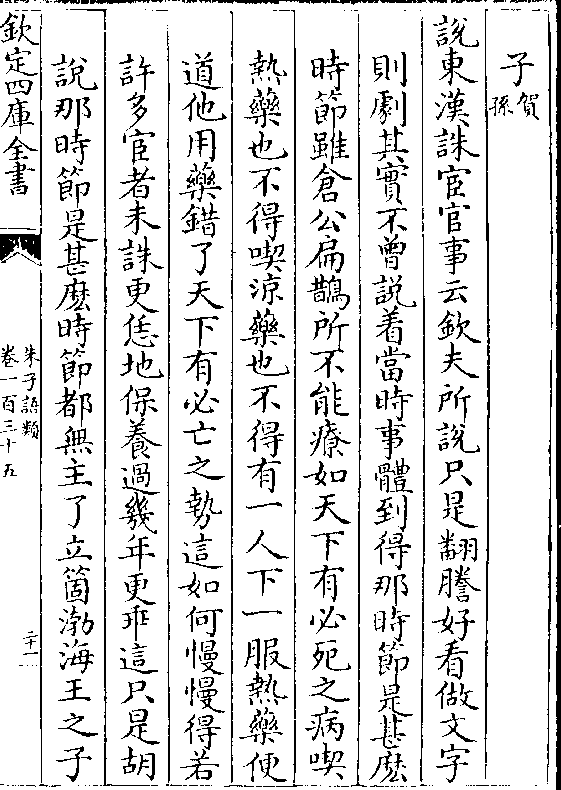 子賀孫
說東漢誅宦官事云欽夫所說只是翻謄好看做文字
則劇其實不曾說着當時事體到得那時節是甚麽
時節雖倉公扁鵲所不能療如天下有必死之病喫
熱藥也不得喫涼藥也不得有一人下一服熱藥便
道他用藥錯了天下有必亡之勢這如何慢慢得若
許多宦者未誅更恁地保養過幾年更乖這只是胡
說那時節是甚麽時節都無主了立箇渤海王之子
欽定四庫全書
朱子語類
卷一百三十五
二十一